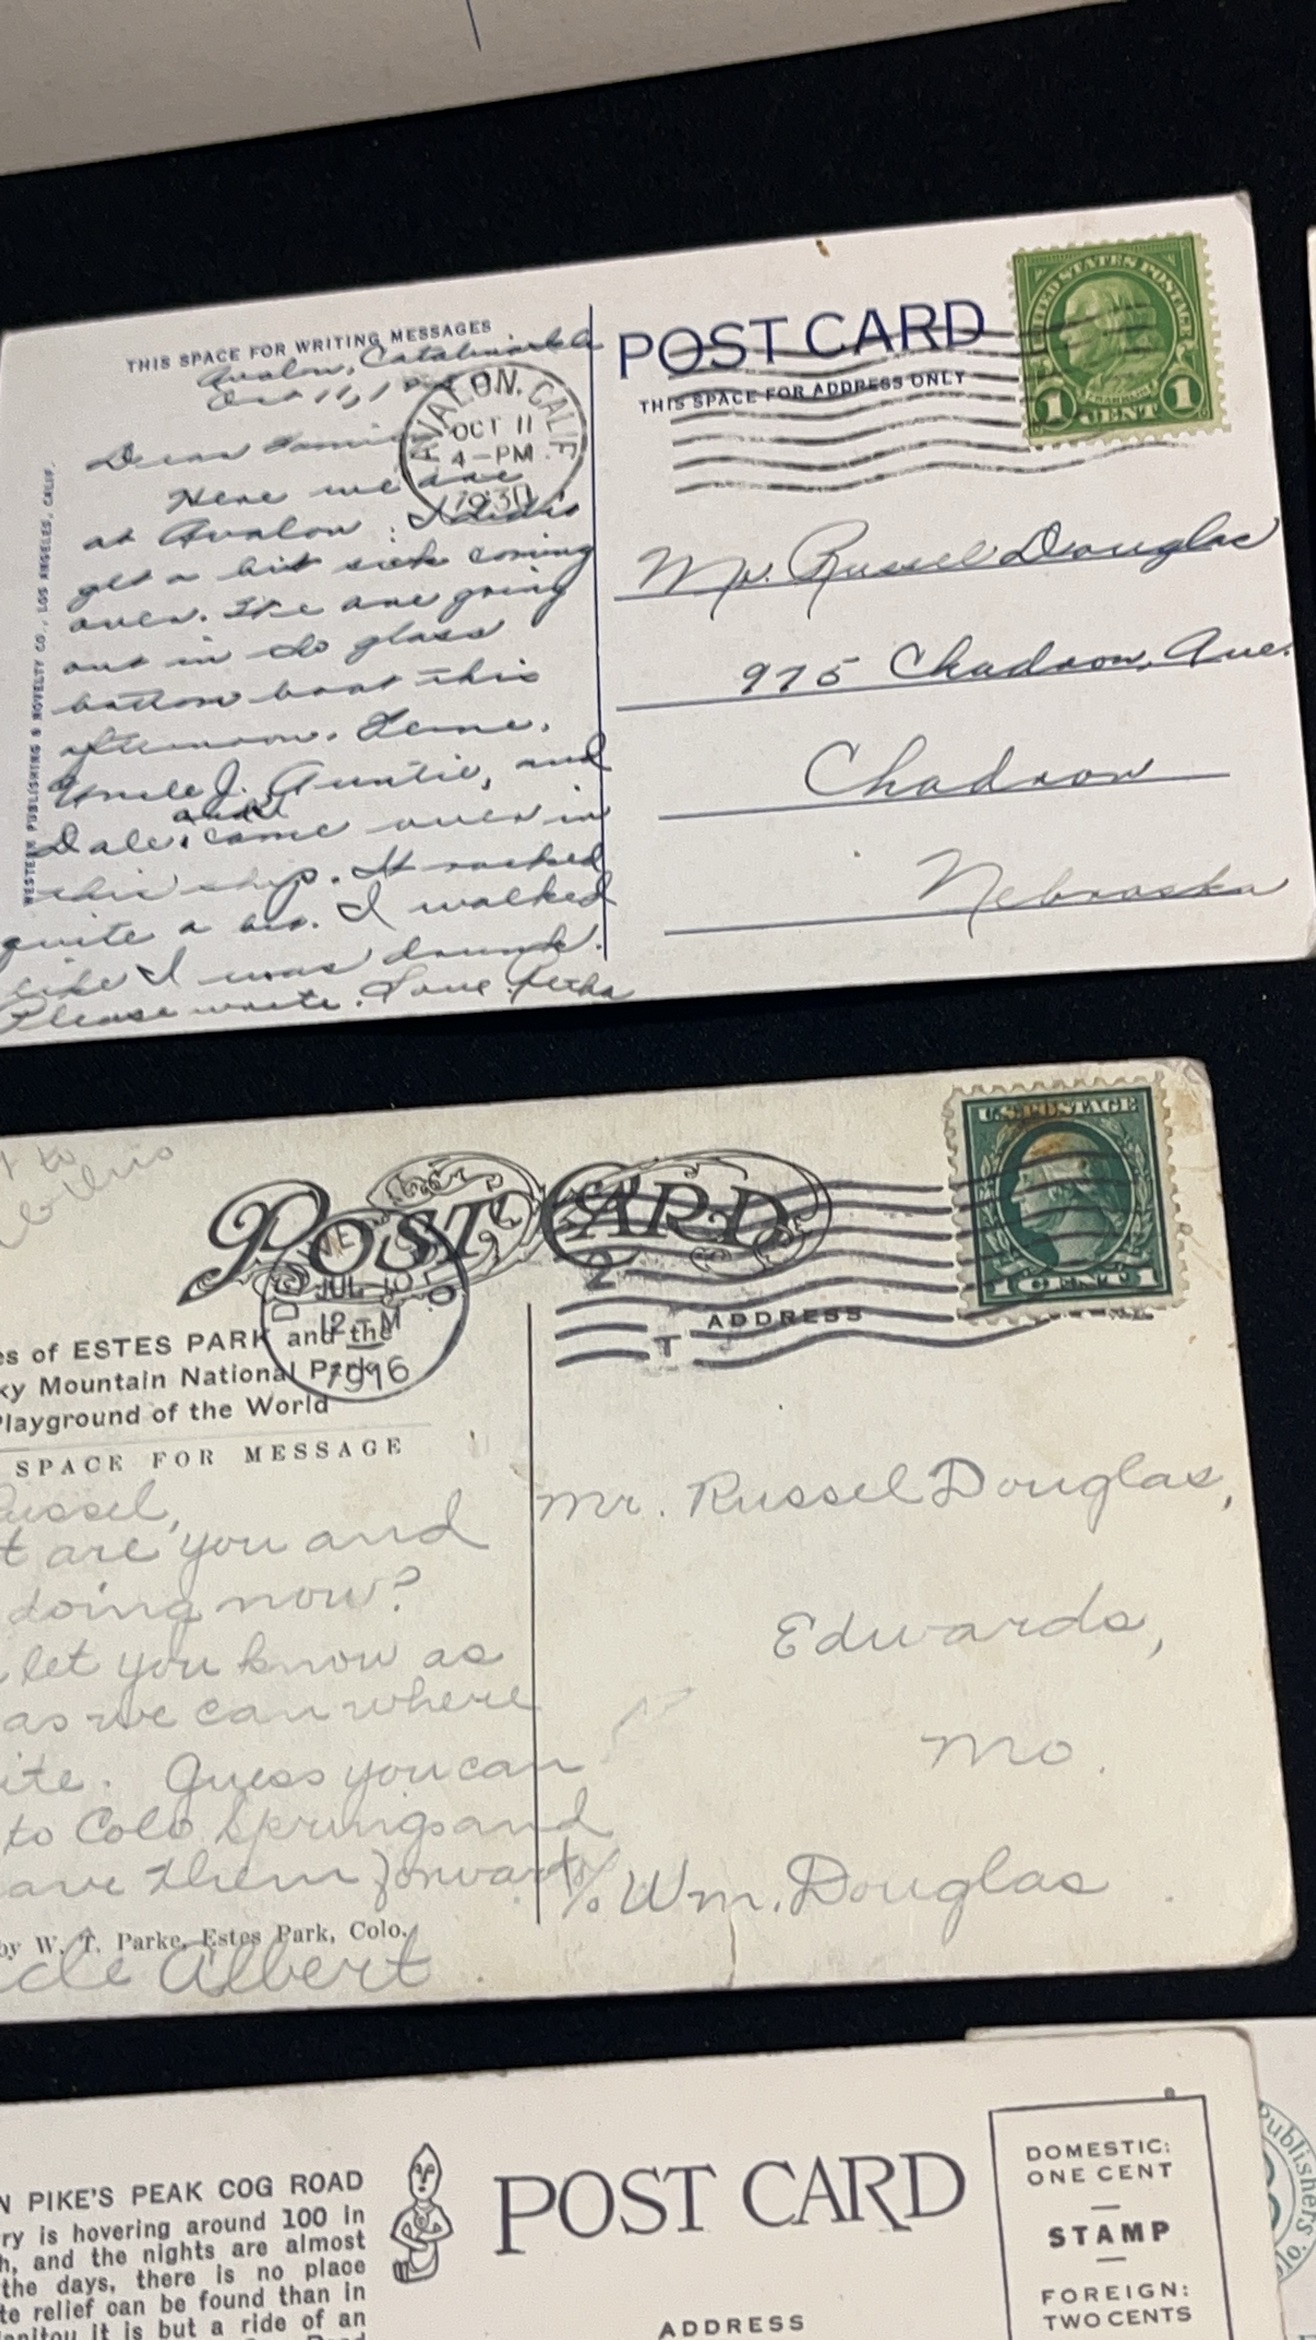 THIS SPACE FOR WRITING MESSAGES
Avalon, Catalina
Oct 11, 1
AVALON, CALIF.
OCT 11
4-PM
1930
POST CARD
THIS SPACE FOR ADDRESS ONLY
UNITED STATES POSTAGE
FRANKLIN
1 CENT 1
WESTERN PUBLISHING & NOVELTY CO., LOS ANGELES, CALIF.
Dear
Here we are
at Avalon.
get a bit sick coming
over. We are going
out in glass
bottom boat this
afternoon.
Uncle J. Auntie, and
Dale, came over in
this ship. It rocked
quite a bit. I walked
like I was drunk.
Please write. Love
Mr. Russel Douglas
975 Chadron, Ave.
Chadron
Nebraska
to
POST CARD
U.S. POSTAGE
1 CENT 1
JUL 10
12-M
1916
2
T
ADDRESS
es of ESTES PARK and the
ky Mountain National Park
Playground of the World
SPACE FOR MESSAGE
ussel,
t are you and
doing now?
let you know as
as we can where
ite. Guess you can
to Colo Springs and
ave them forward
by W. T. Parke, Estes Park, Colo.
cle Albert
Mr. Russel Douglas,
Edwards,
Mo.
c/o Wm. Douglas
N PIKE'S PEAK COG ROAD
ry is hovering around 100 in
h, and the nights are almost
the days, there is no place
te relief can be found than in
anitou it is but a ride of an
POST CARD
ADDRESS
DOMESTIC:
ONE CENT
STAMP
FOREIGN:
TWO CENTS
Publishers